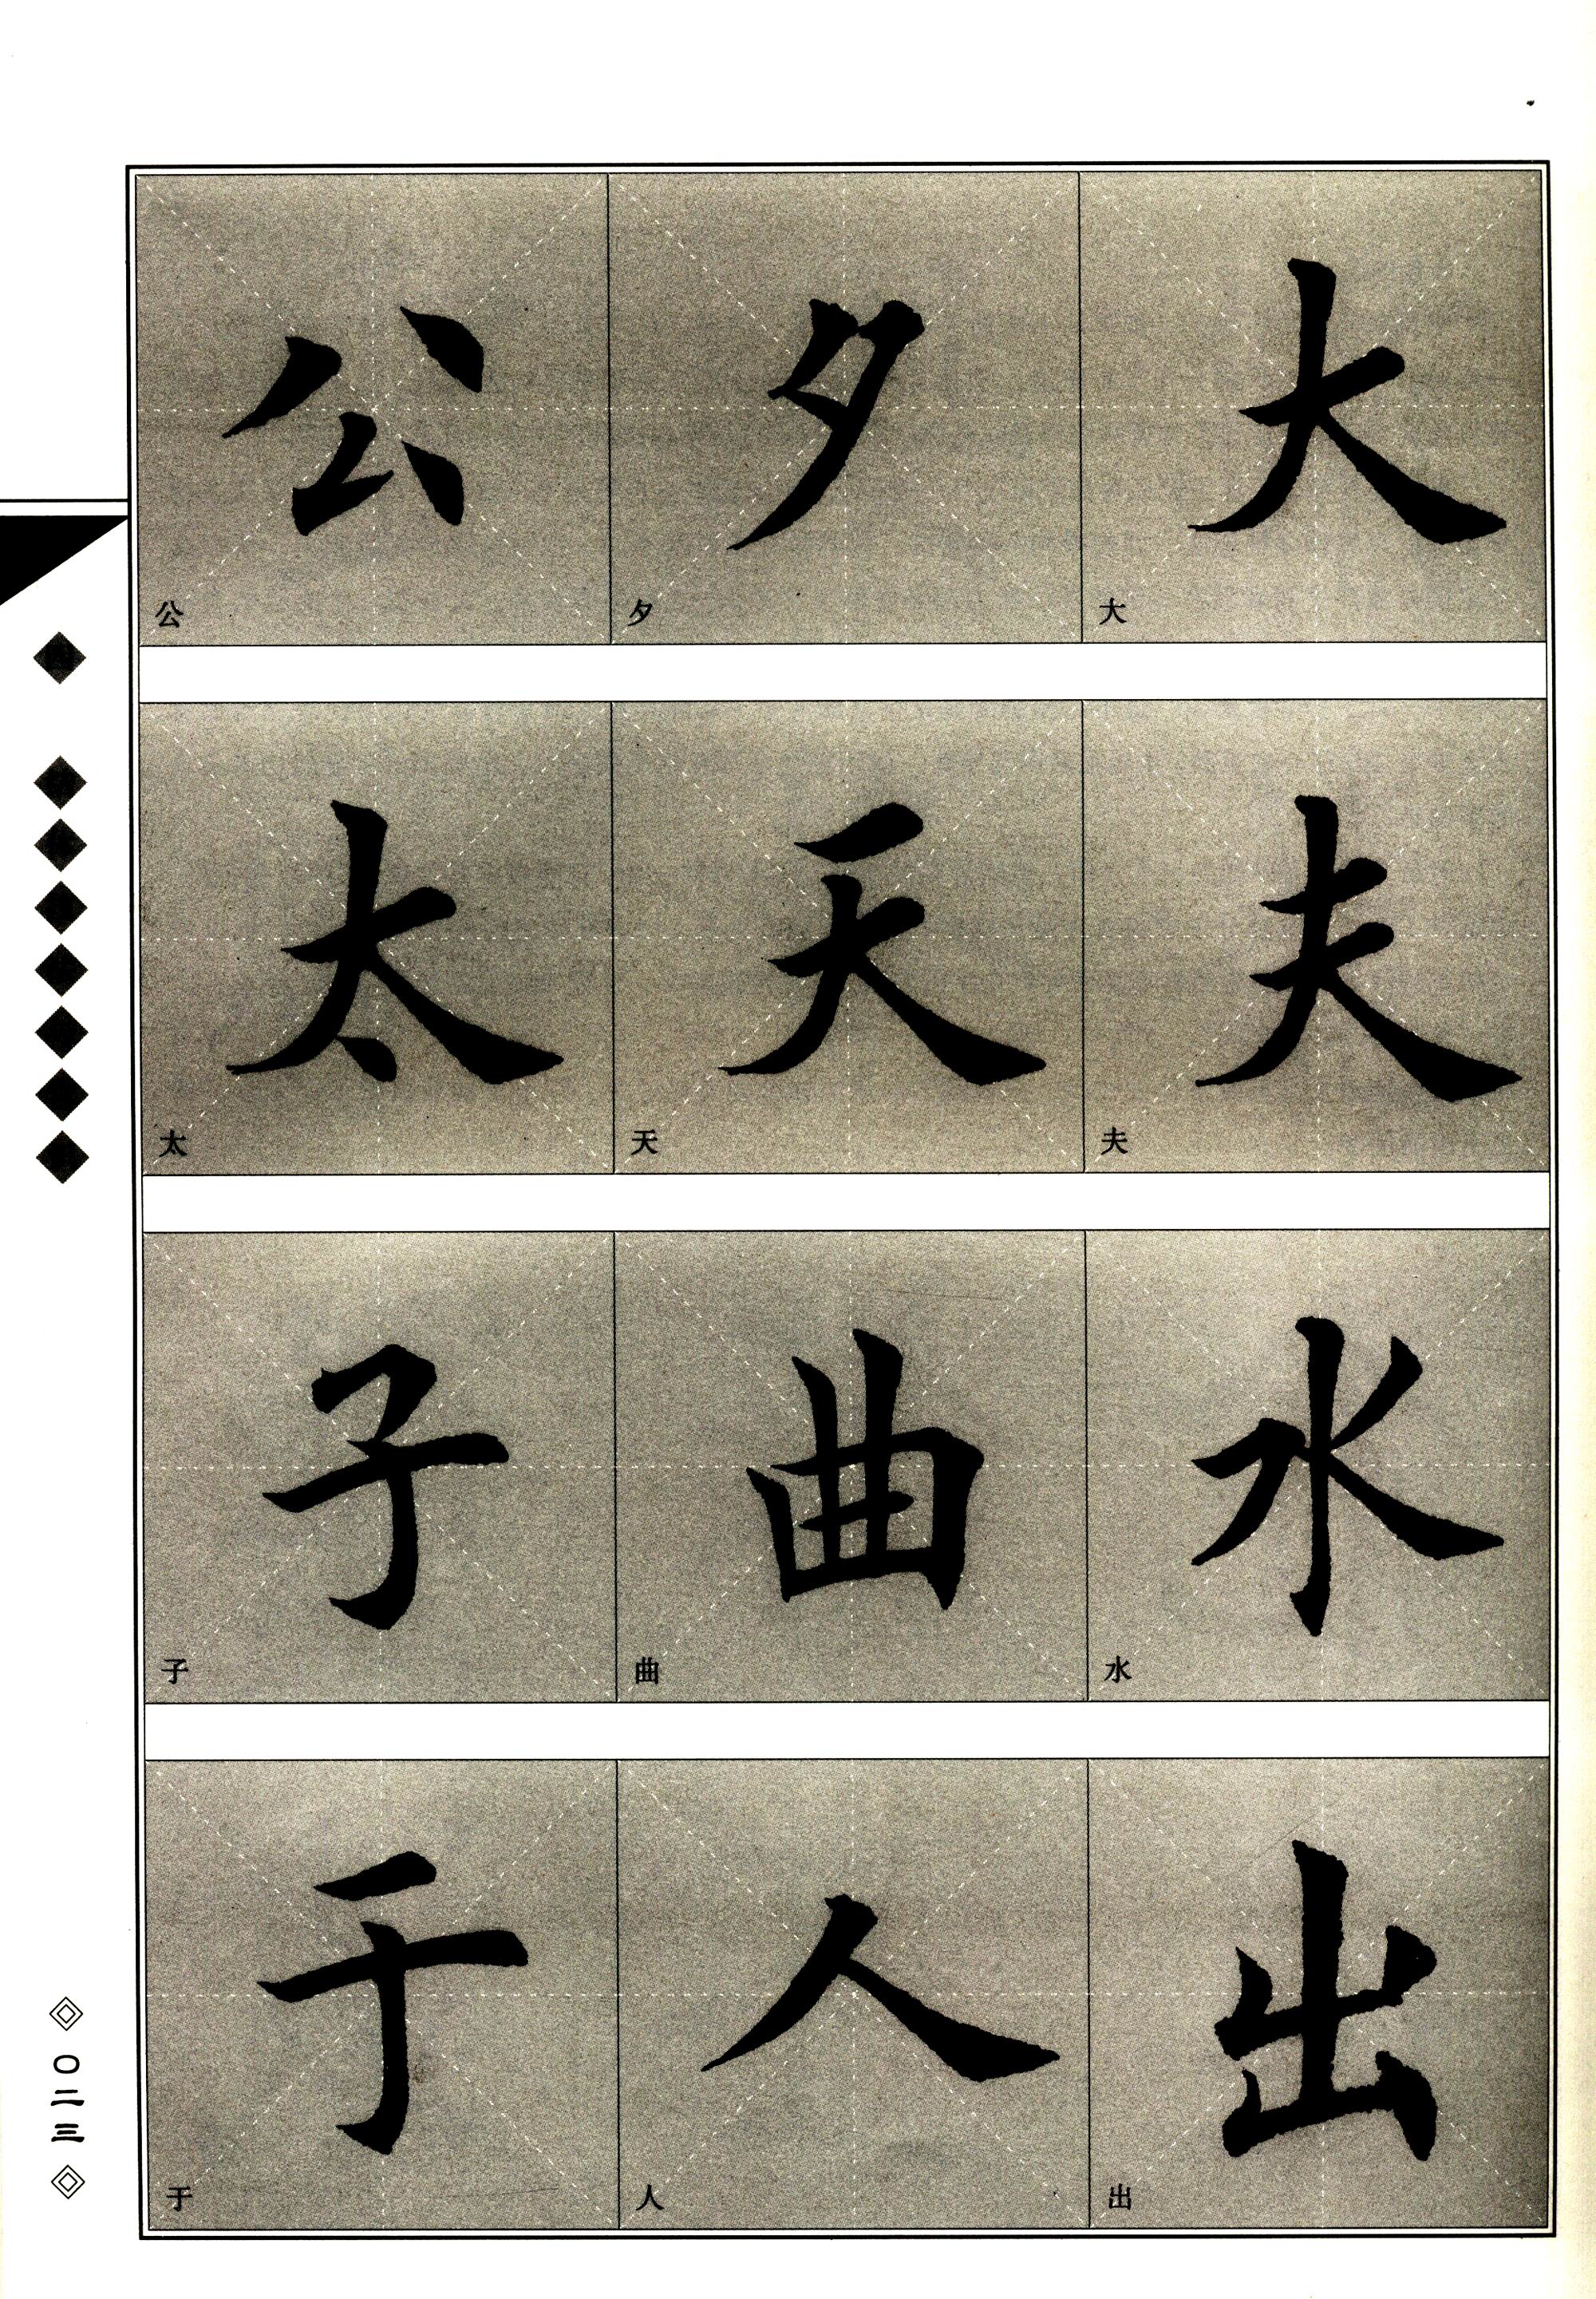 公 夕 大
公 夕 大
太 天 夫
太 天 夫
子 曲 水
子 曲 水
于 人 出
于 人 出
〇二三